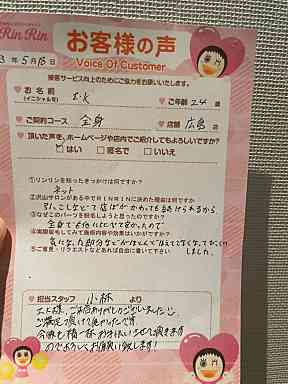 RinRin
お客様の声
Voice Of Customer
3 年 5月 13日
接客サービス向上のためにご協力をお願いいたします。
お 名 前
(イニシャル可)
ご年齢 24 歳
ご契約コース 全身
店舗 広島 店
頂いた声を、ホームページや店内でご紹介してもよろしいですか?
はい 匿名で いいえ
①リンリンを知ったきっかけは何ですか?
ネット
②沢山サロンがある中でRINRINに決めた理由は何ですか
引っこしなどで店ばがかわっても続けられるから
③なぜこのパーツを脱毛しようと思ったのですか?
全身でも他に比べて安かったので
④実際脱毛してみて施術内容や効果はいかがですか?
気になった部分などがほとんど はえてこなくて
⑤ご意見・リクエストなどあれば自由に書いて下さい
しました。
担当スタッフ 小林 より
ご来店ありがとうございました
ご満足 頂けて良かったです
今後も精一杯お手伝いさせて頂きます
のでよろしくお願い致します!